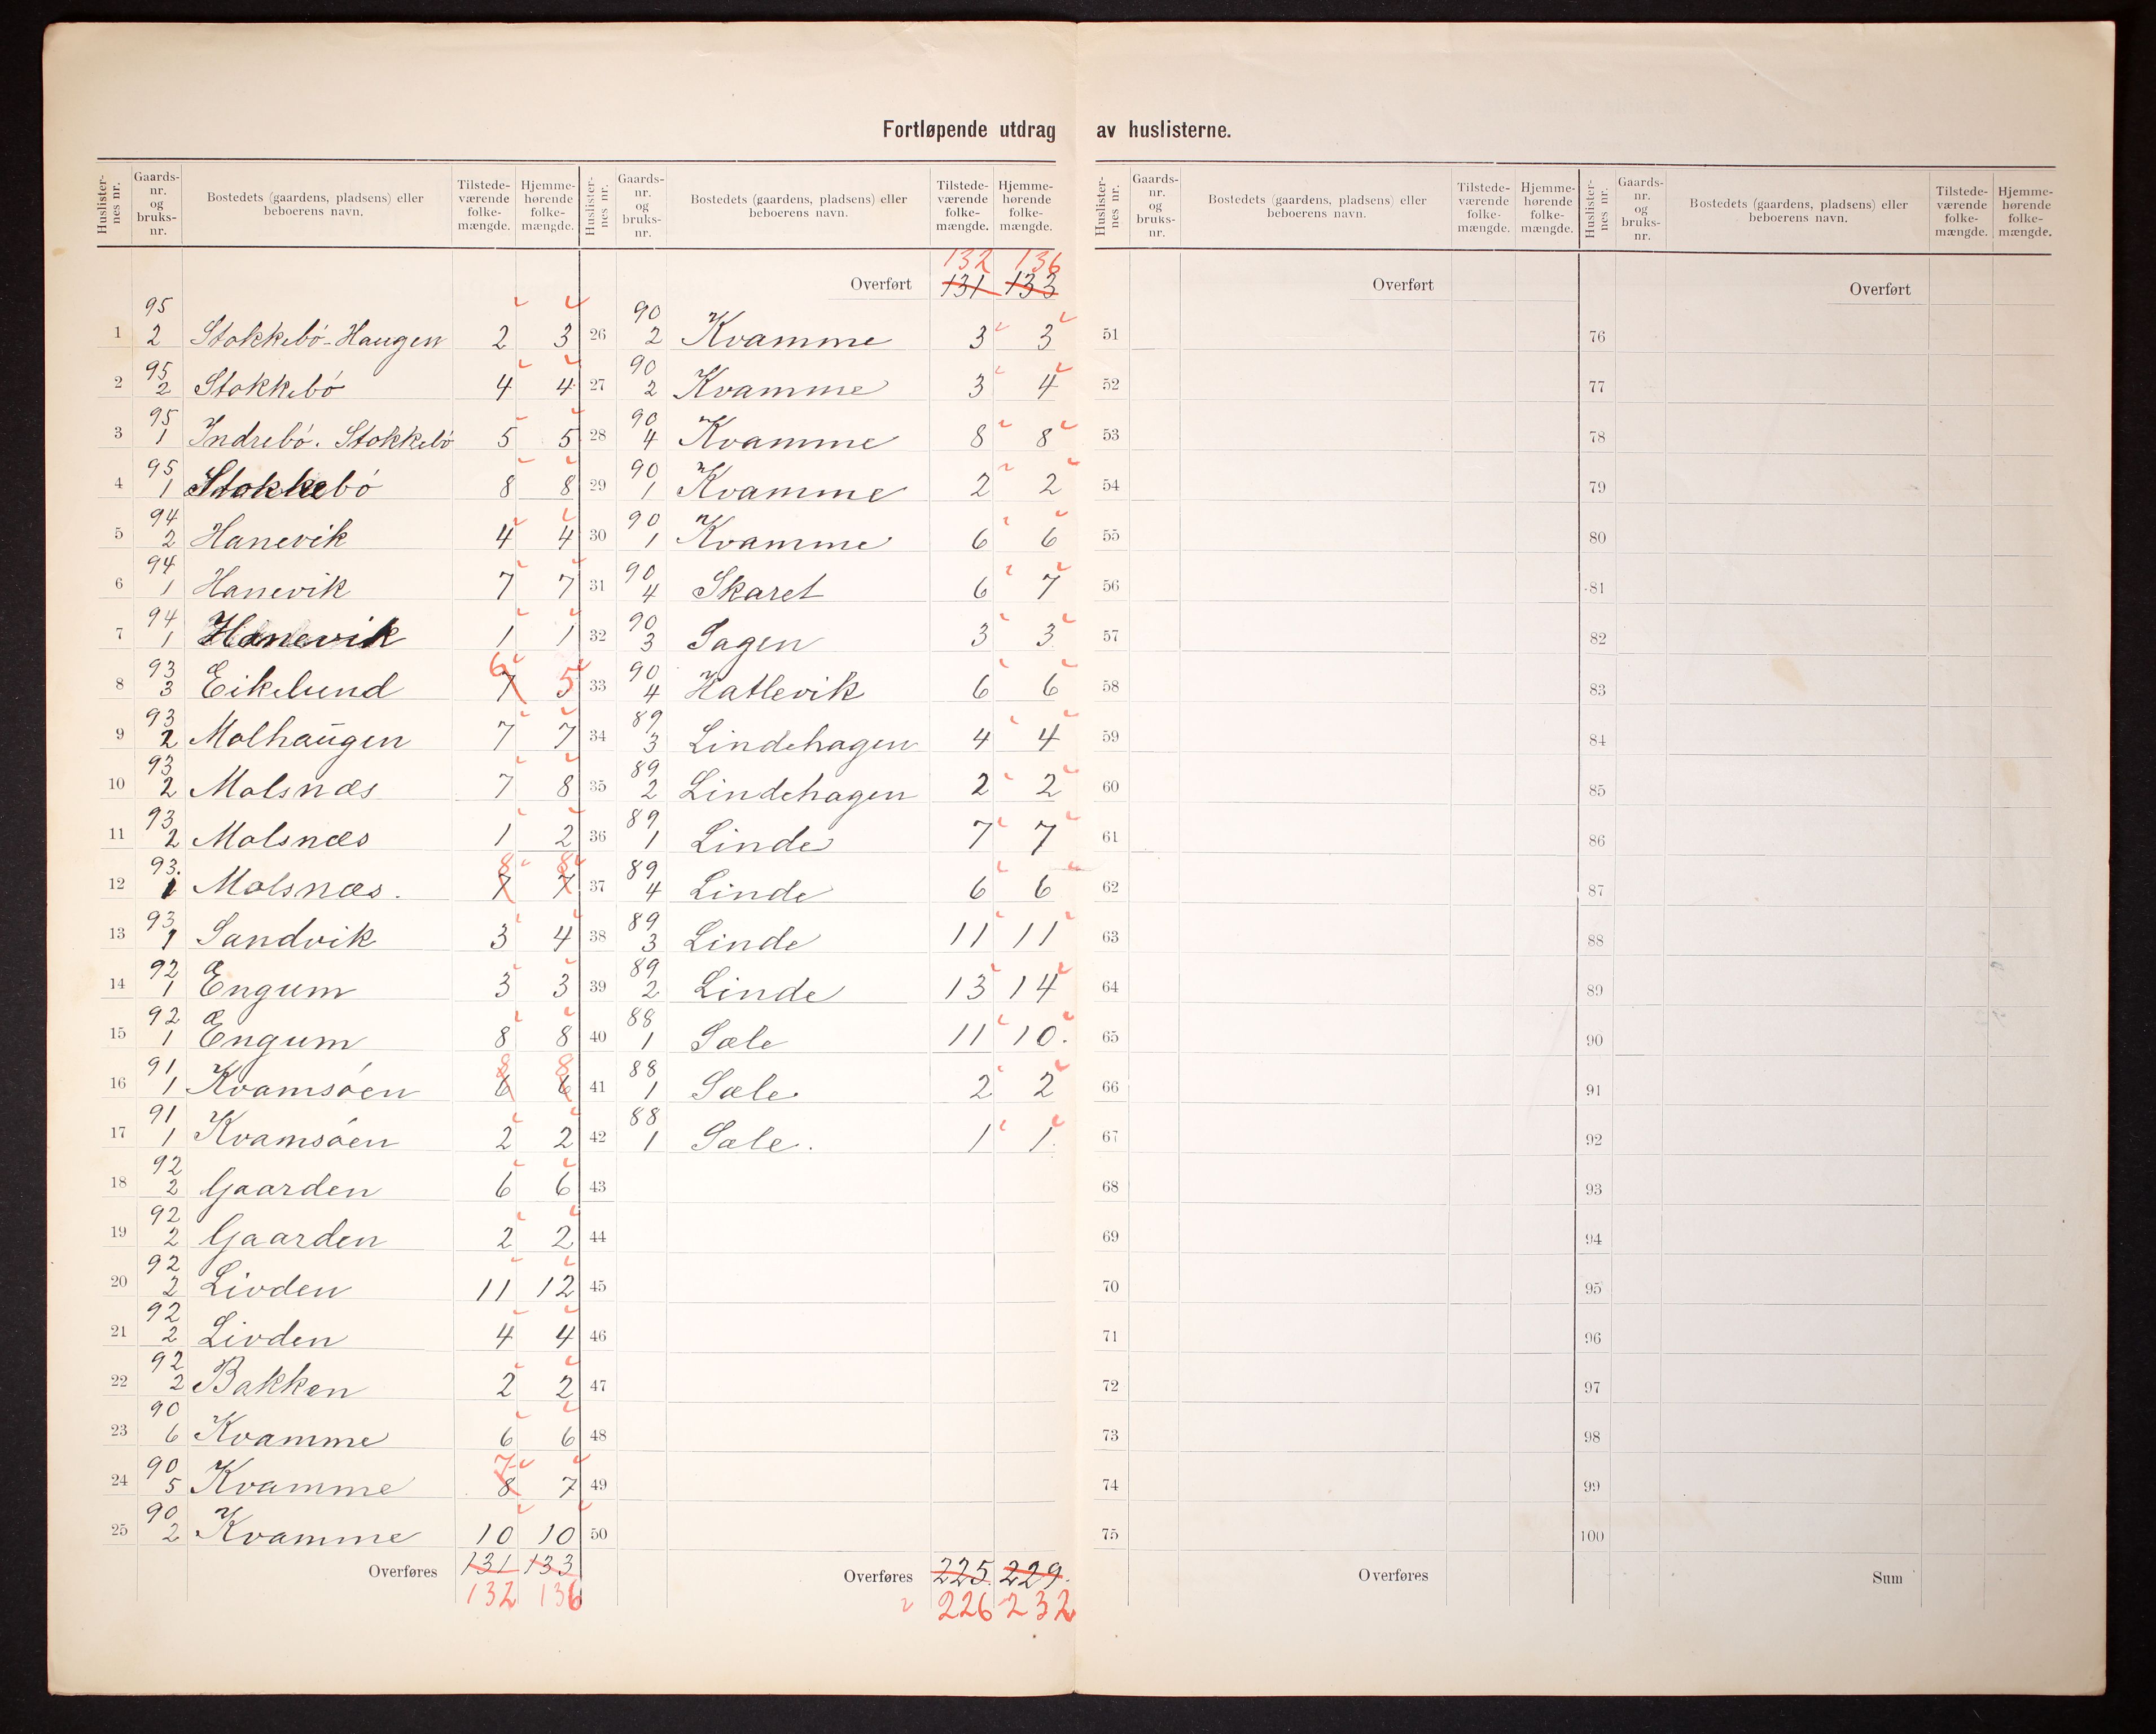 Fortløpende utdrag av huslisterne.
Huslister-nes nr. Gaards-nr. og bruks-nr. Bostedets (gaardens, pladsens) eller beboerens navn. Tilstede-værende folke-mængde. Hjemme-hørende folke-mængde.
1 95 2 Stokkebö-Haugen 2 3
2 95 2 Stokkebö 4 4
3 95 1 Indrebö. Stokkebö 5 5
4 95 1 Stokkebö 8 8
5 94 2 Hanevik 4 4
6 94 1 Hanevik 7 7
7 94 1 Hanevik 1 1
8 93 3 Eikelund 7 6 5
9 93 2 Molhaugen 7 7
10 93 2 Molsnæs 7 8
11 93 2 Molsnæs 1 2
12 93. 1 Molsnæs. 7 8 7 8
13 93 1 Sandvik 3 4
14 92 1 Engum 3 3
15 92 1 Engum 8 8
16 91 1 Kvamsöen 6 8 6 8
17 91 1 Kvamsöen 2 2
18 92 2 Gaarden 6 6
19 92 2 Gaarden 2 2
20 92 2 Livden 11 12
21 92 2 Livden 4 4
22 92 2 Bakken 2 2
23 90 6 Kvamme 6 6
24 90 5 Kvamme 8 7 7
25 90 2 Kvamme 10 10
Overføres 131 133
132 136
Huslister-nes nr. Gaards-nr. og bruks-nr. Bostedets (gaardens, pladsens) eller beboerens navn. Tilstede-værende folke-mængde. Hjemme-hørende folke-mængde.
132 136
Overført 131 133
26 90 2 Kvamme 3 3
27 90 2 Kvamme 3 4
28 90 4 Kvamme 8 8
29 90 1 Kvamme 2 2
30 90 1 Kvamme 6 6
31 90 4 Skaret 6 7
32 90 3 Sagen 3 3
33 90 4 Hatlevik 6 6
34 89 3 Lindehagen 4 4
35 89 2 Lindehagen 2 2
36 89 1 Linde 7 7
37 89 4 Linde 6 6
38 89 3 Linde 11 11
39 89 2 Linde 13 14
40 88 1 Sæle 11 10.
41 88 1 Sæle 2 2
42 88 1 Sæle. 1 1.
43
44
45
46
47
48
49
50
Overføres 225. 229.
226 232
Huslister-nes nr. Gaards-nr. og bruks-nr. Bostedets (gaardens, pladsens) eller beboerens navn. Tilstede-værende folke-mængde. Hjemme-hørende folke-mængde.
Overført
51
52
53
54
55
56
57
58
59
60
61
62
63
64
65
66
67
68
69
70
71
72
73
74
75
Overføres
Huslister-nes nr. Gaards-nr. og bruks-nr. Bostedets (gaardens, pladsens) eller beboerens navn. Tilstede-værende folke-mængde. Hjemme-hørende folke-mængde.
Overført
76
77
78
79
80
81
82
83
84
85
86
87
88
89
90
91
92
93
94
95
96
97
98
99
100
Sum